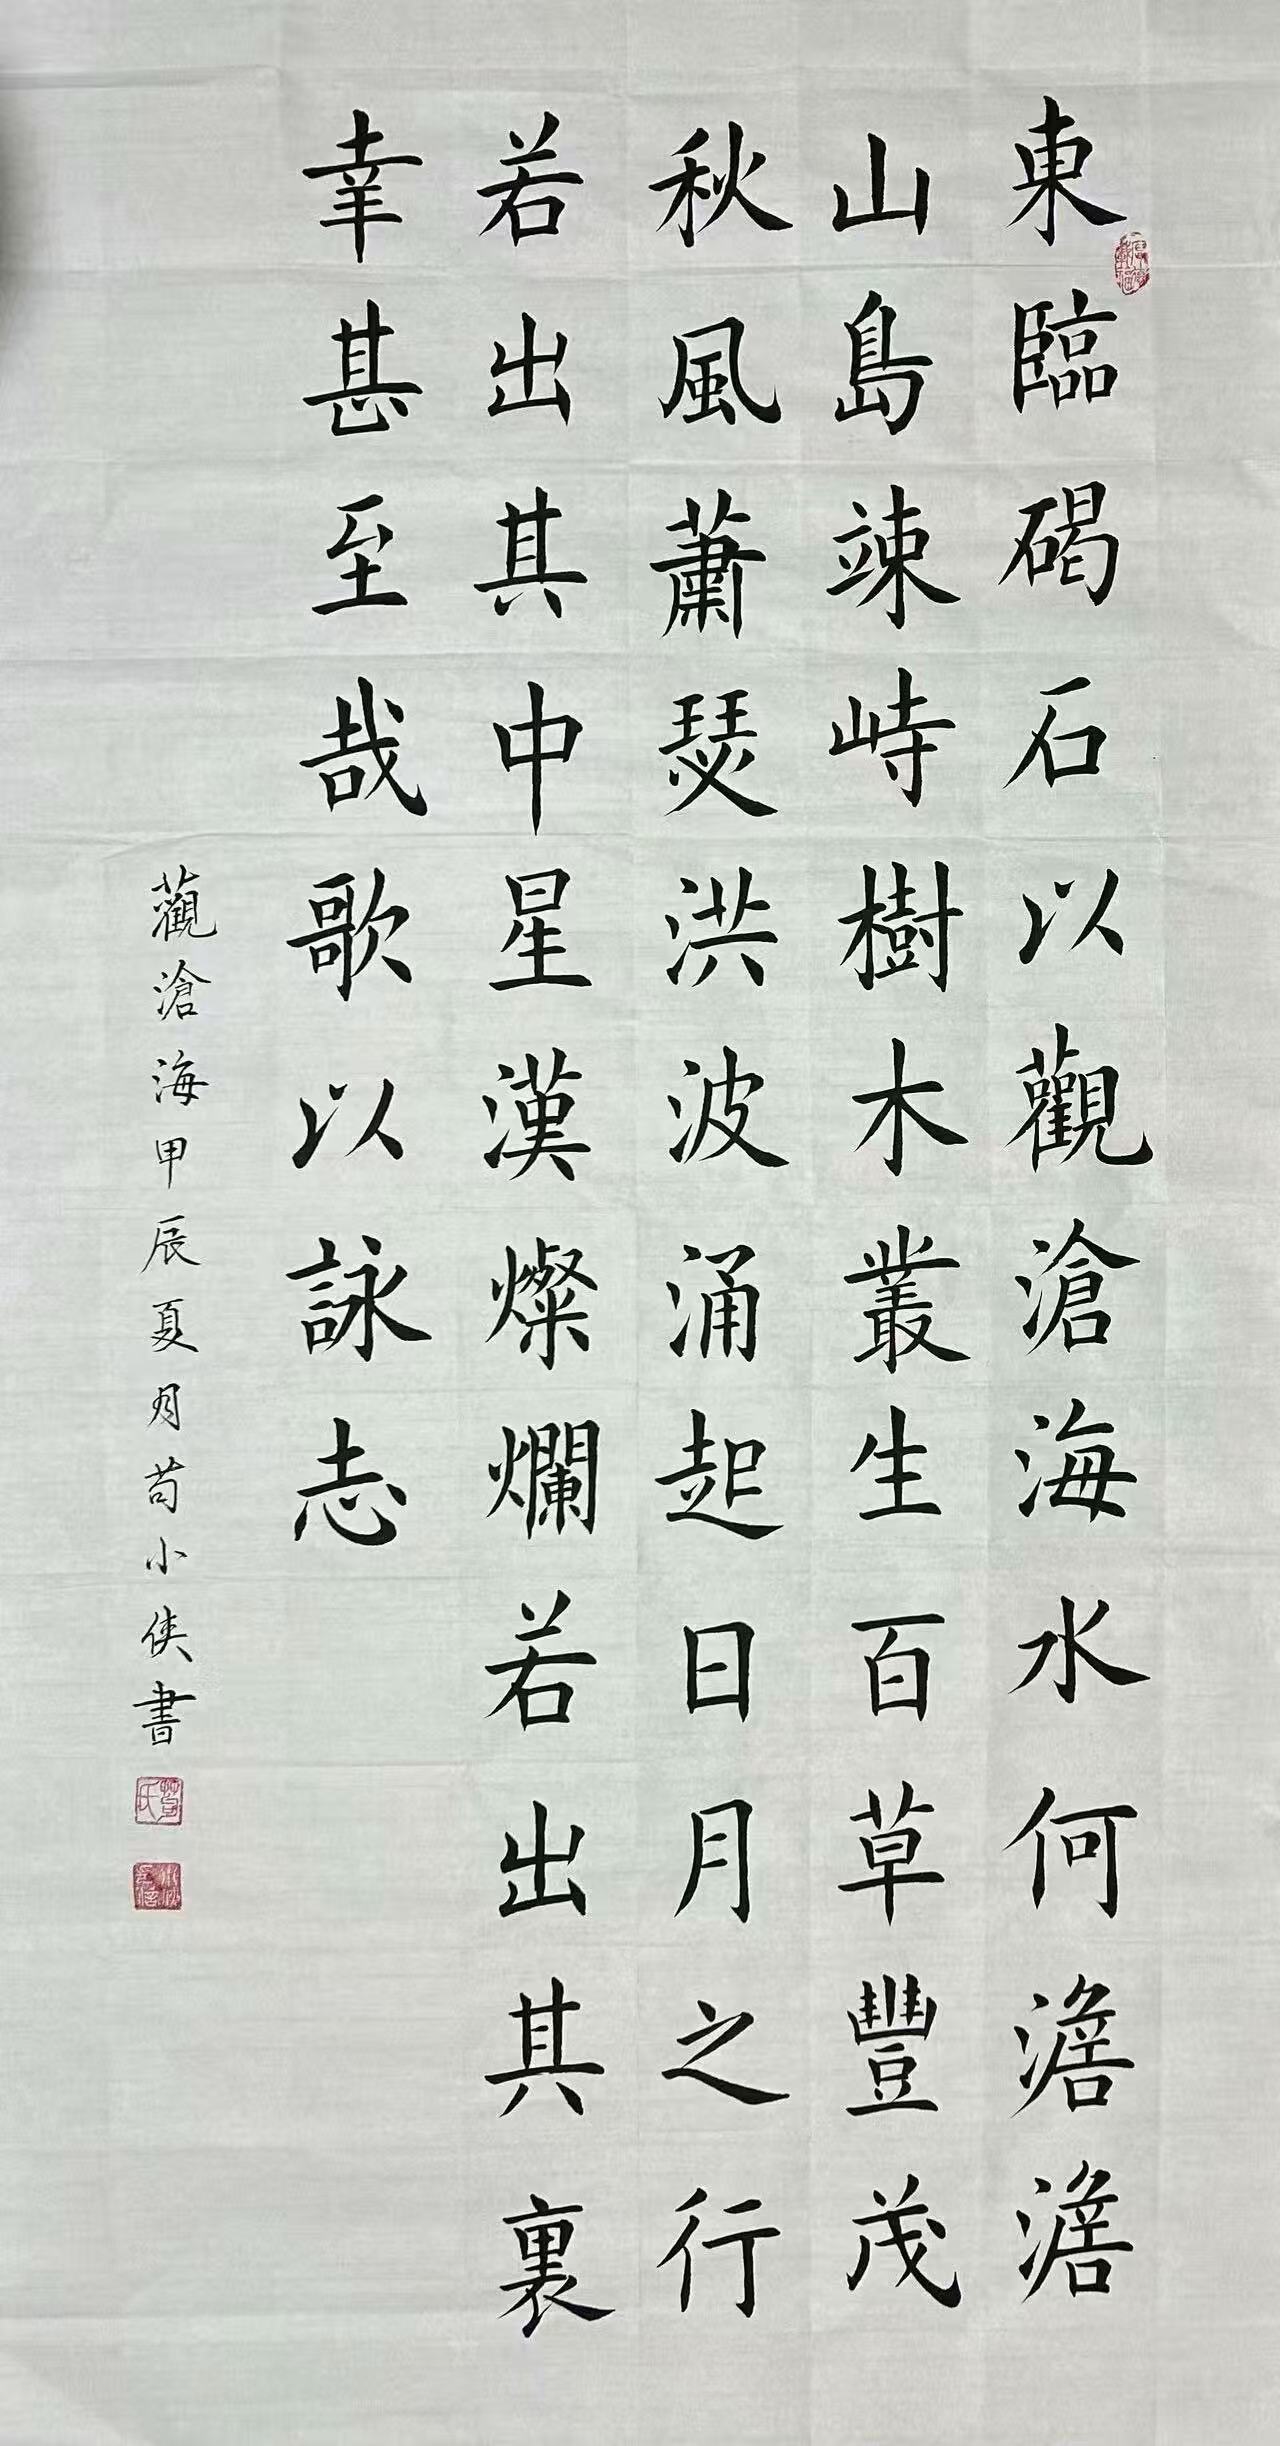 東臨碣石以觀滄海水何澹澹
山島竦峙樹木叢生百草豐茂
秋風蕭瑟洪波涌起日月之行
若出其中星漢燦爛若出其裏
幸甚至哉歌以詠志
觀滄海甲辰夏月苟小俠書